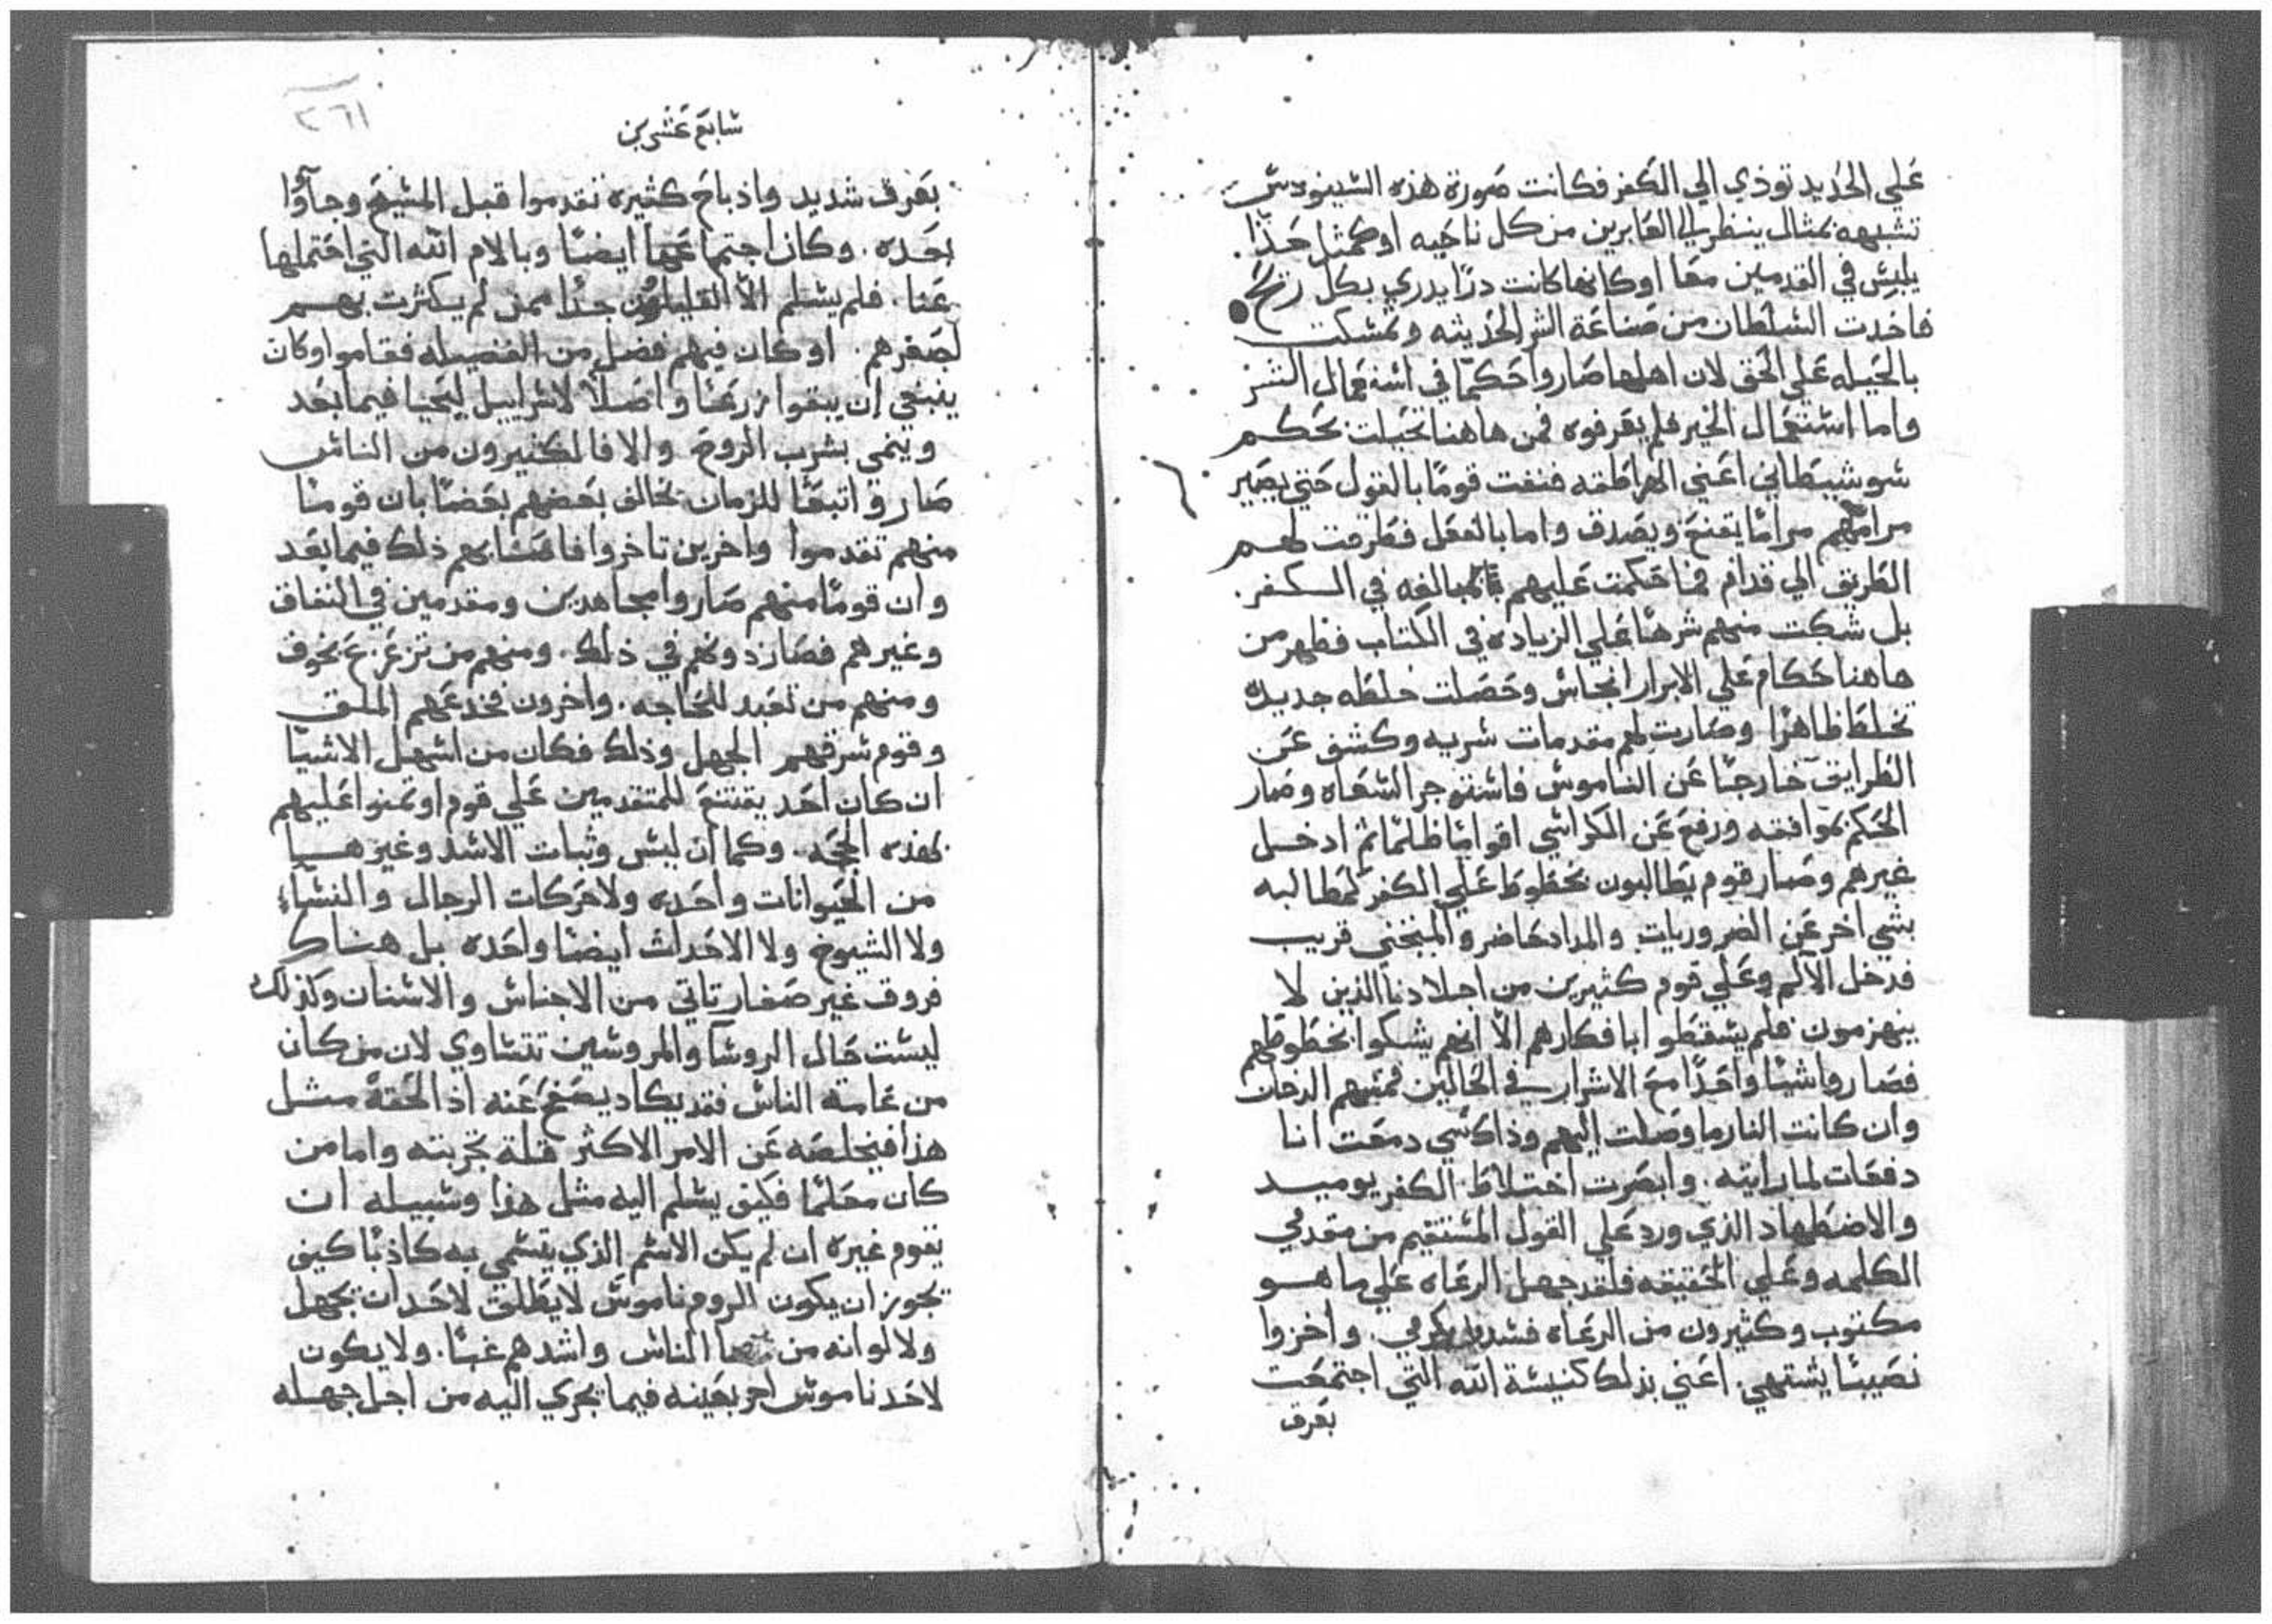 علي الحديد توذي الي الكفر فكانت صورة هذه السينودس
تشبهه بمثال ينظر الي العابرين من كل ناحيه او كمثل حذا
يلبس في القدمين معا او كانها كانت درا يدري بكل ريح
فاخدت السلطان من صناعة الشر الحديثه وتمسكت
بالحيله علي الحق لان اهلها صاروا حكما في استعمال الشر
واما استعمال الخير فلم يعرفوه فمن هاهنا تحيلت بحكم
سو شيطاني اعني الهراطقه فنفت قوما بالقول حتي يصير
مرامهم مراما يقنع ويصدق واما بالفعل فطرقت لهم
الطريق الي قدام فما حكمت عليهم بالمبالغه في الكفر.
بل شكت منهم شرها علي الزياده في الكتاب فظهر من
هاهنا حكام علي الابرار انجاس وحصلت خلطه جديده
تخلط ظاهرا وصارت لهم مقدمات سريه وكشف عن
الطرايق خارجا عن الناموس فاستوجر السعاه وصار
الحكم بموافقه ورفع عن الكراسي اقواما ظلما ثم ادخل
غيرهم وصار قوم يطالبون بخطوط علي الكفر لمطالبه
بشي اخر عن الضروريات والمداد حاضر والمتجني قريب
فدخل الالم وعلي قوم كثيرين من اجلادنا الذين لا
ينهزمون فلم يسقطوا بافكارهم الا انهم يشكوا بخطوطهم
فصاروا شيا واحدا مع الاشرار في الحالين فمسهم الدخان
وان كانت النار ما وصلت اليهم وذاك شي دمعت انا
دفعات لما رايته. وابصرت اختلاط الكفر يوميد
والاضطهاد الذي ورد علي القول المستقيم من مقدمي
الكلمه وعلي الحقيقه فلقد جهل الرعاه علي ما هو
مكتوب وكثيرون من الرعاه فسدوا كرمي. واخزوا
نصيبا يشتهي. اعني بذلك كنيسة الله التي اجتمعت
بعرق
سابع عشرين
٢٦١
بعرق شديد واذباح كثيره تقدموا قبل المسيح وجاؤا
بعده. وكان اجتماعها ايضا وبالام الله التي احتملها
عنا. فلم يسلم الا القليلون جدا ممن لم يكثرت بهم
لصغرهم. او كان فيهم فضل من الفضيله فقاموا وكان
ينبغي ان يبقوا زرعا واصلا لاسراييل ليحيا فيما بعد
وينمي بشرب الروح والا فالكثيرون من الناس
صاروا تبعا للزمان تخالف بعضهم بعضا بان قوما
منهم تقدموا واخرين تاخروا فاصابهم ذلك فيما بعد
وان قوما منهم صاروا مجاهدين ومقدمين في النفاق
وغيرهم فصار دونهم في ذلك. ومنهم من تزعزع بخوف
ومنهم من تعبد للحاجه. واخرون فخدعهم الملق
وقوم سرقهم الجهل وذلك فكان من اسهل الاشيا
ان كان احد يقتنع للمتقدمين علي قوم اوتمنوا عليهم
بهذه الحجه. وكما ان ليس وثبات الاسد وغيرها
من الحيوانات واحده ولا حركات الرجال والنساء
ولا الشيوخ ولا الاحداث ايضا واحده بل هناك
فروق غير صغار تاتي من الاجناس والاسنان وكذلك
ليست حال الروسا والمروسين تتساوي لان من كان
من عامة الناس فقد يكاد يصفح عنه اذ الحقه مثل
هذا فيخلصه عن الامر الاكثر قلة تجربته واما من
كان معلما فكيف يسلم اليه مثل هذا وسبيله ان
يقوم غيره ان لم يكن الاسم الذي يتسمي به كاذبا كيف
يجوز ان يكون الروم ناموس لا يطلق لاحد ان يجهل
ولا لو انه من الناس واشدهم غبا. ولا يكون
لاحد ناموس اخر بعينه فيما يجري اليه من اجل جهله